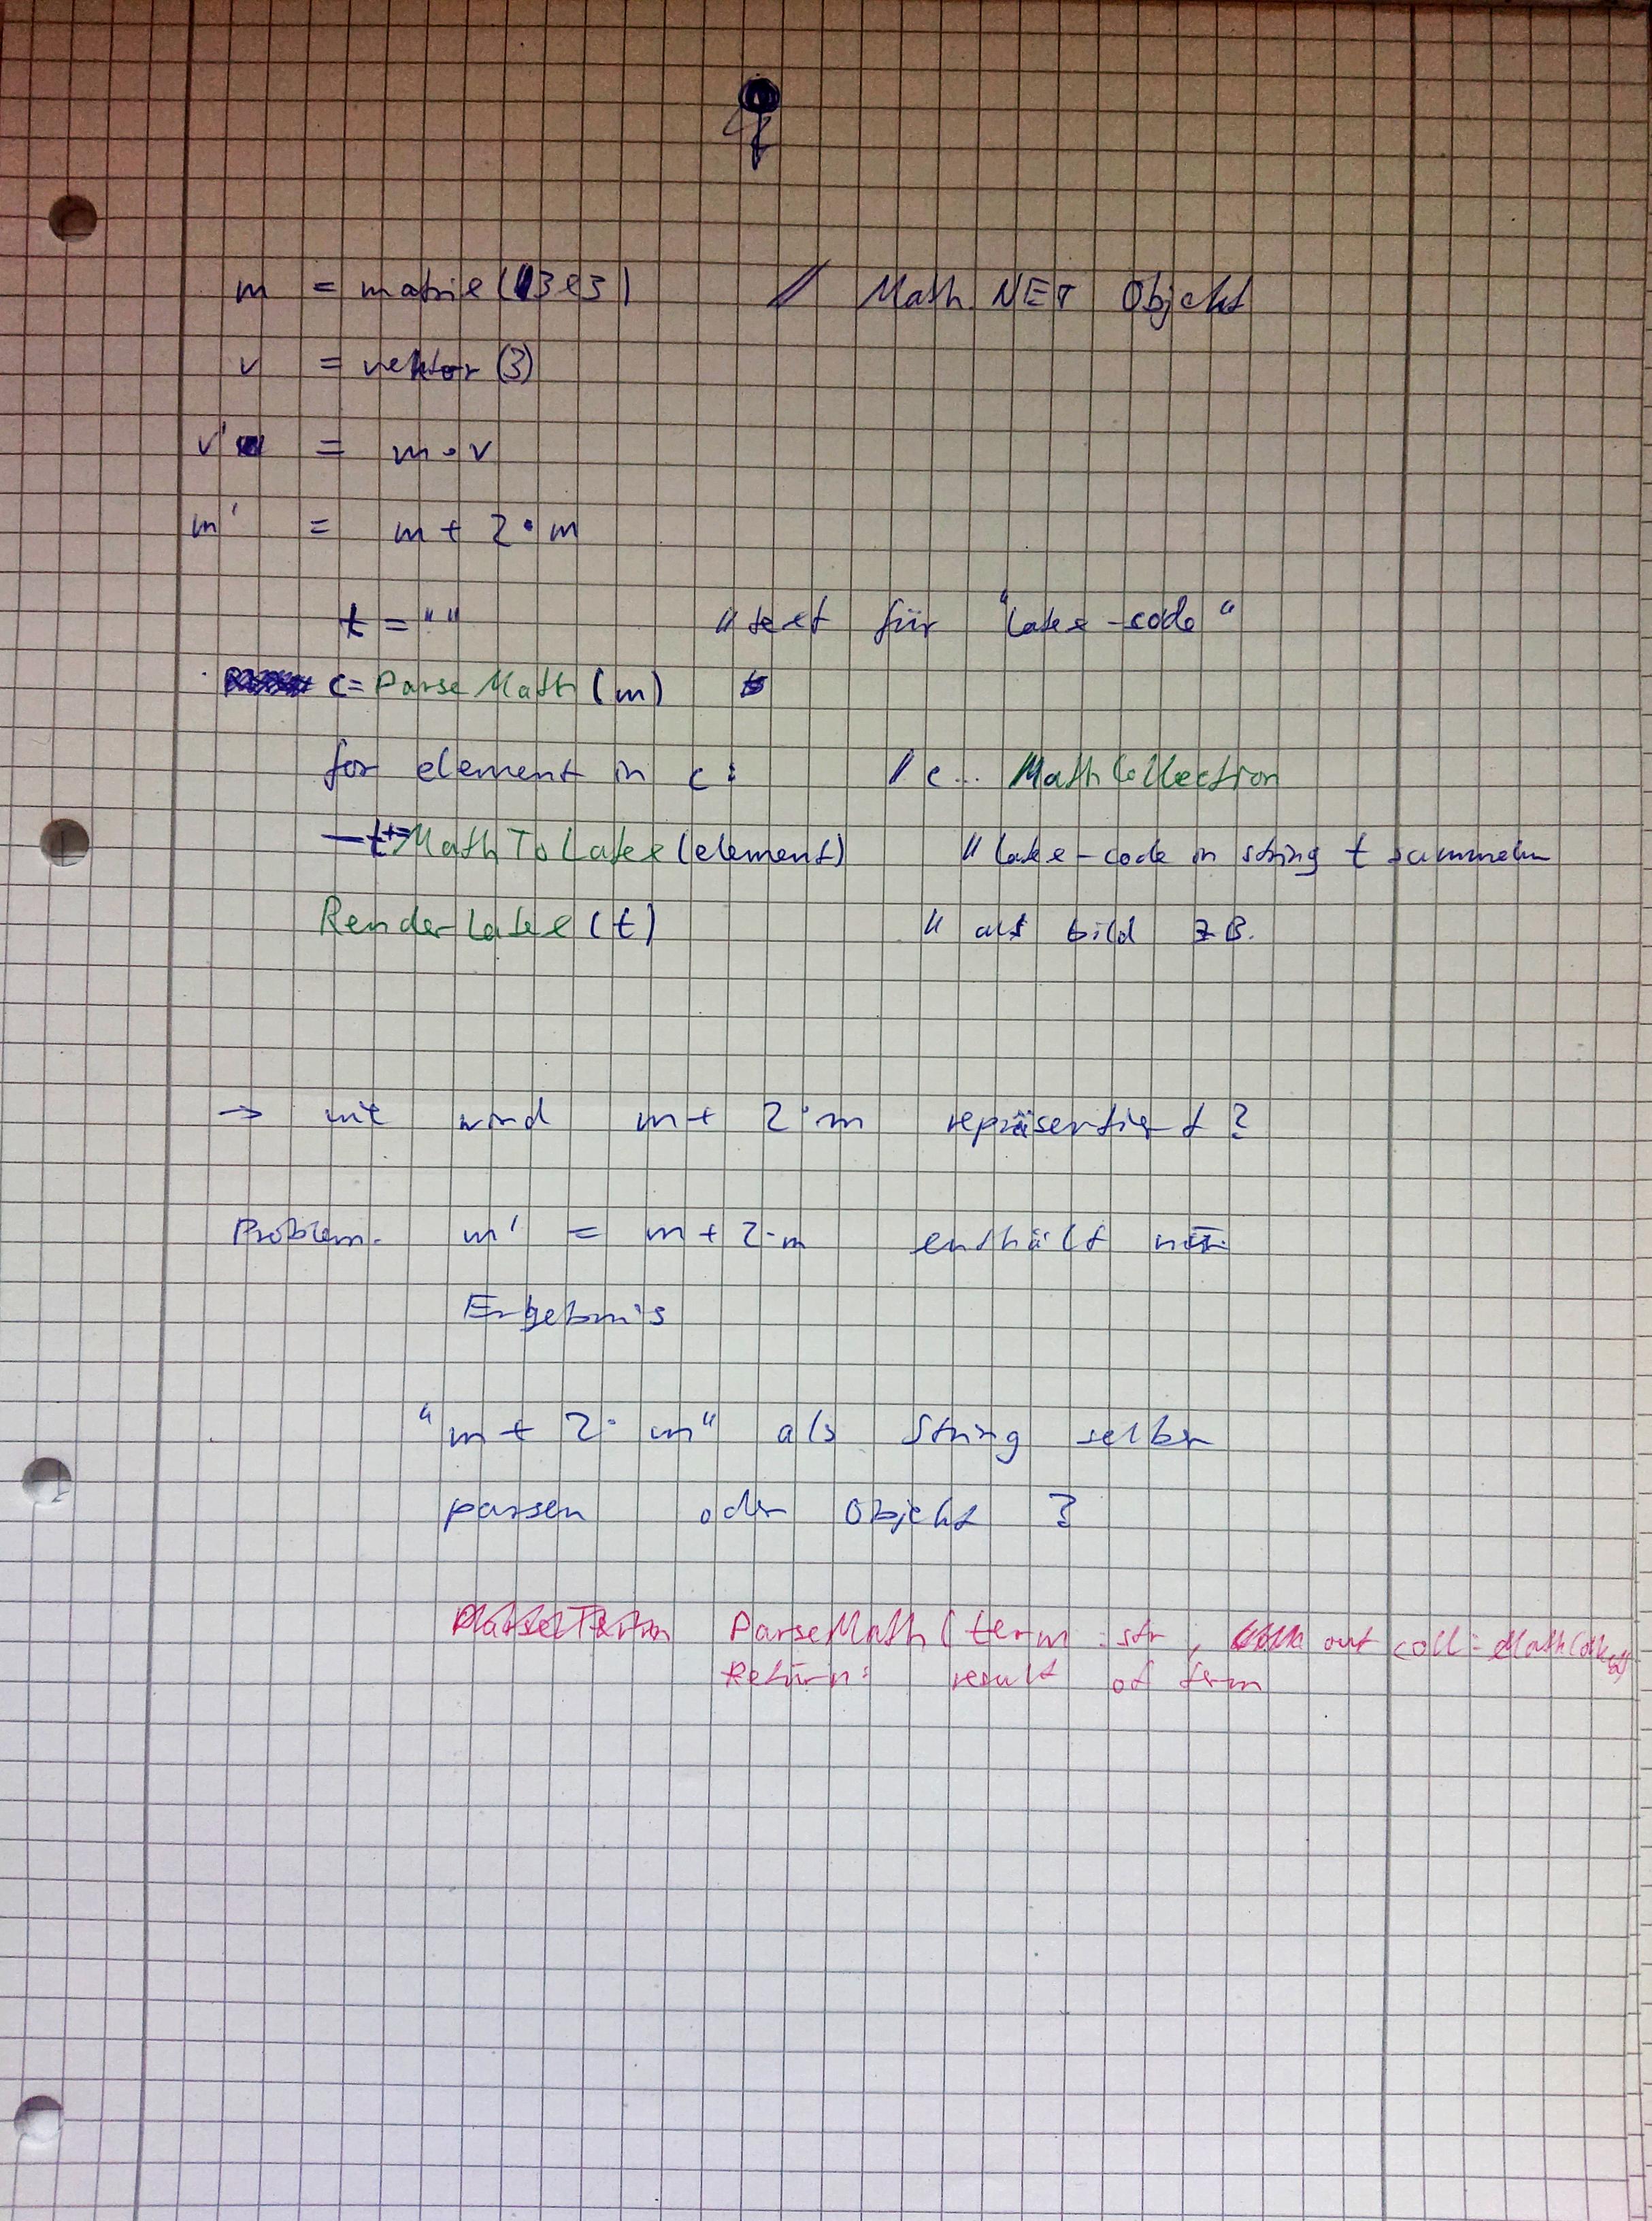 m = matrix(3x3) // Math.NET Objekt
v = vektor(3)
v' = m • v
m' = m + 2 • m
t = "" // text für "latex-code"
c = ParseMath(m)
for element in c: // c... MathCollection
t+=MathToLatex(element) // latex-code in string t sammeln
RenderLatex(t) // als bild z.B.
→ wie wird m + 2·m repräsentiert?
Problem. m' = m + 2·m enthält nur
Ergebnis
"m + 2· m" als String selber
parsen oder Objekt ?
ParseTerm ParseMath(term : str, out coll : MathColl
Return: result of term